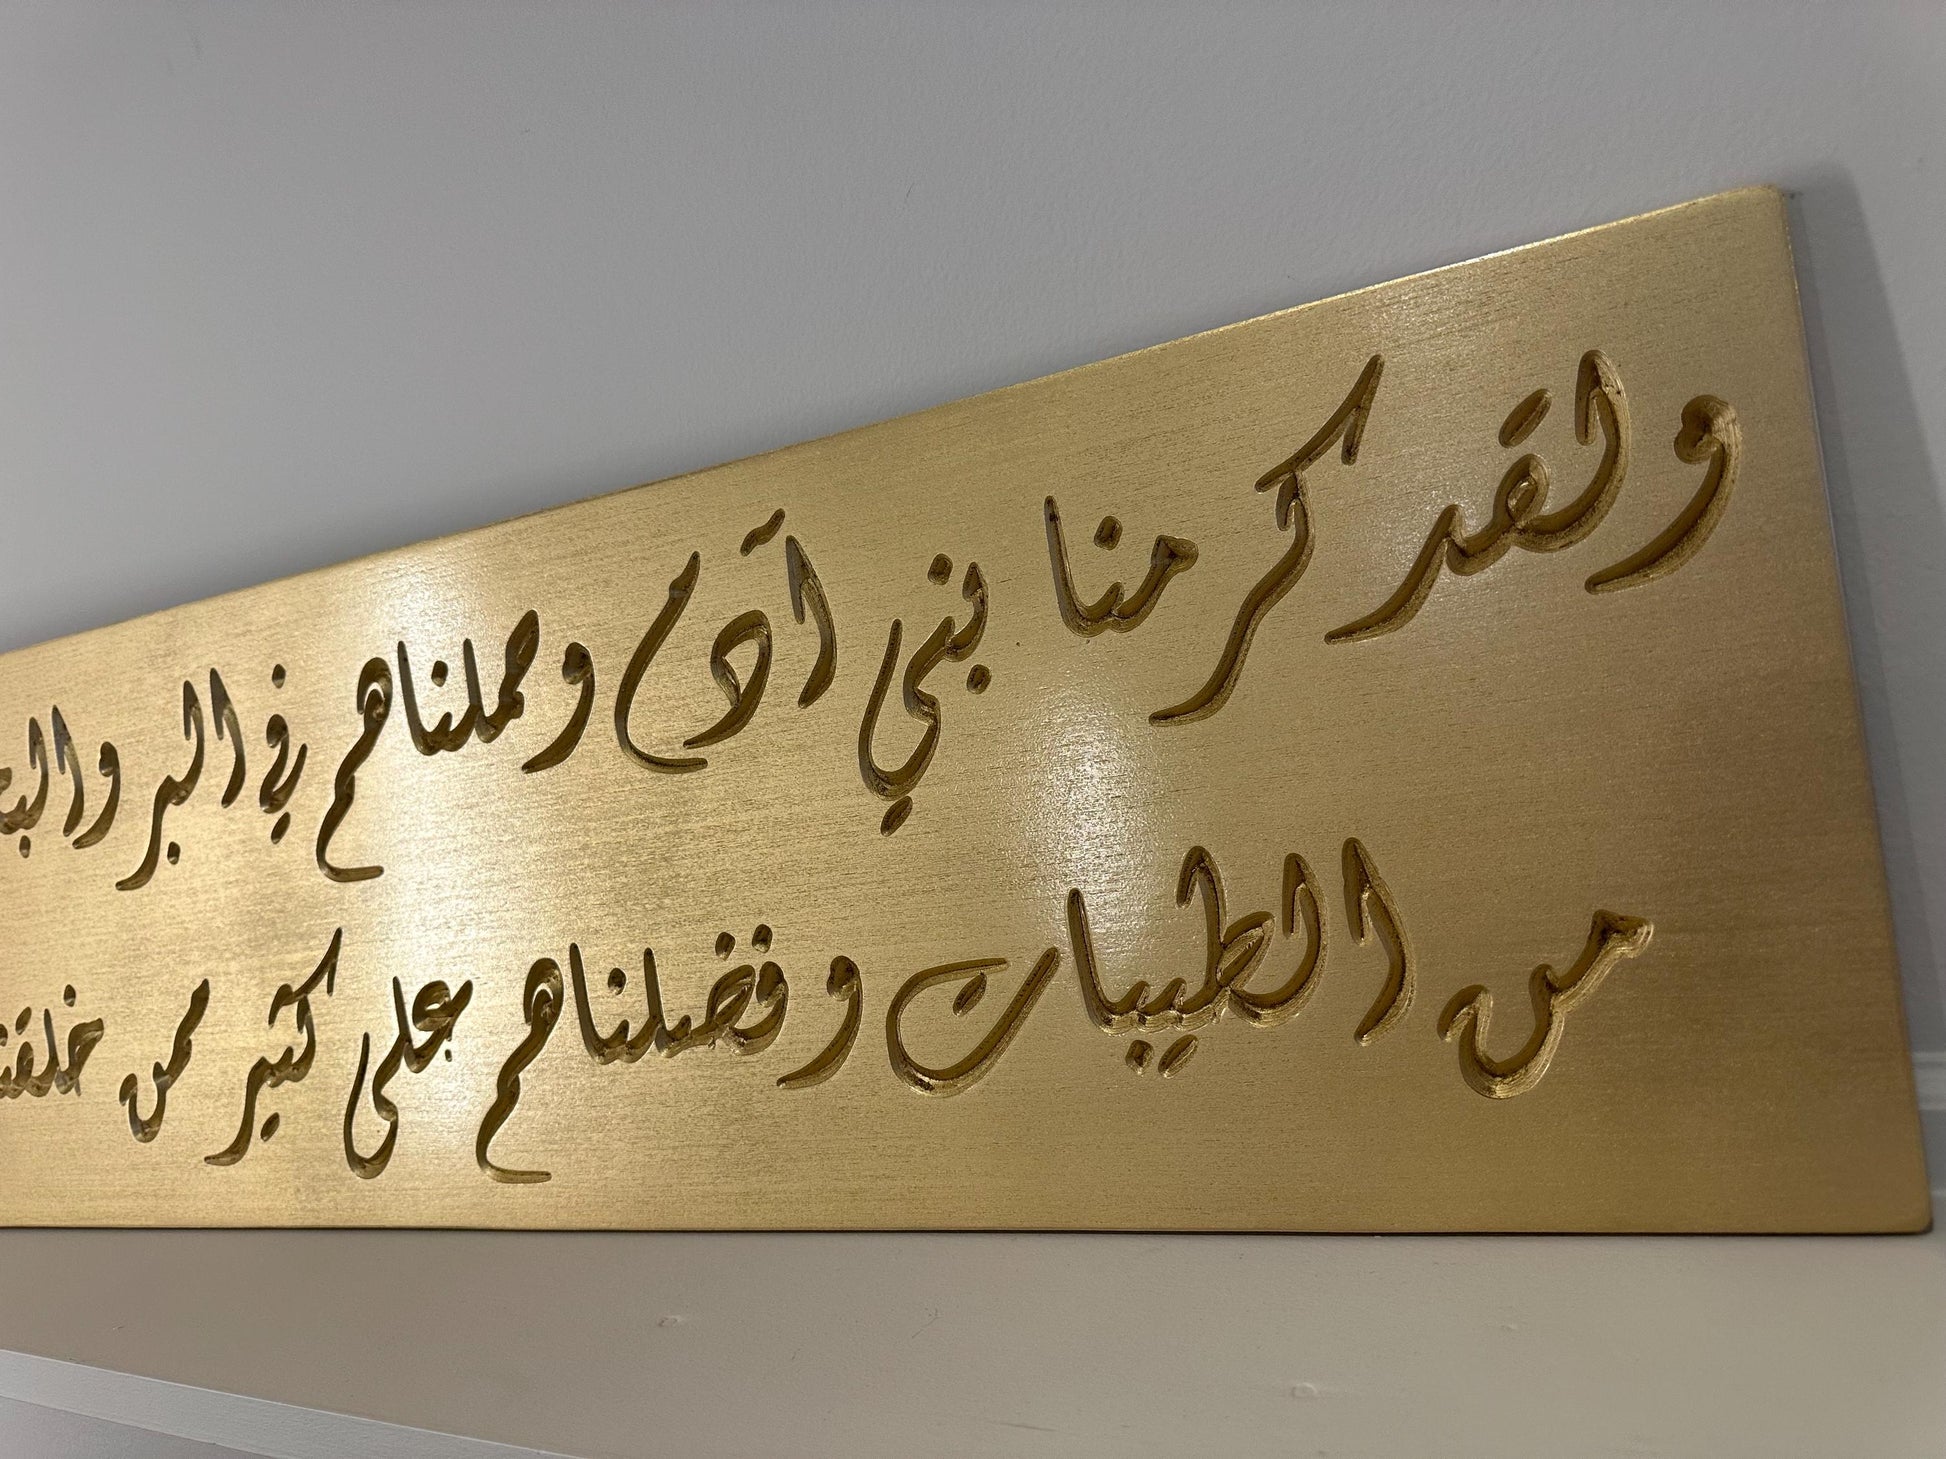 ولقد كرمنا بني آدم وحملناهم في البر والبحر
من الطيبات وفضلناهم على كثير ممن